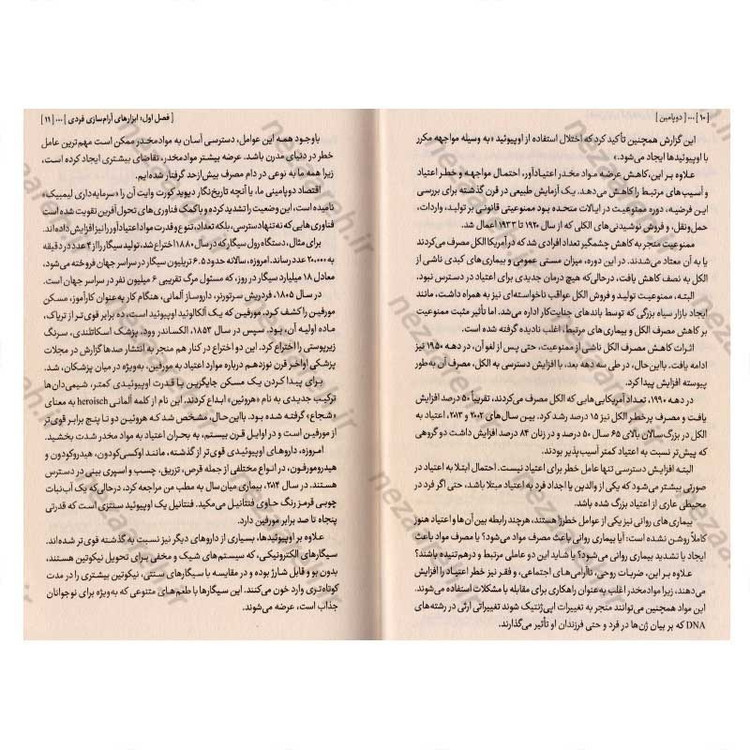 [ ۱۰ ] ... [ دوپامین ]
این گزارش همچنین تأکید کرد که اختلال استفاده از اوپیوئید «به وسیله مواجهه مکرر
با اوپیوئیدها ایجاد می‌شود.»
علاوه بر این، کاهش عرضه مواد مخدر اعتیادآور، احتمال مواجهه و خطر اعتیاد
و آسیب‌های مرتبط را کاهش می‌دهد. یک آزمایش طبیعی در قرن گذشته برای بررسی
این فرضیه، دوره ممنوعیت در ایالات متحده بود ممنوعیتی قانونی بر تولید، واردات،
حمل‌ونقل، و فروش نوشیدنی‌های الکلی که از سال ۱۹۲۰ تا ۱۹۳۳ اعمال شد.
ممنوعیت منجر به کاهش چشمگیر تعداد افرادی شد که در آمریکا الکل مصرف می‌کردند
یا به آن معتاد می‌شدند. در این دوره، میزان مستی عمومی و بیماری‌های کبدی ناشی از
الکل به نصف کاهش یافت، درحالی‌که هیچ درمان جدیدی برای اعتیاد در دسترس نبود.
البته، ممنوعیت تولید و فروش الکل عواقب ناخواسته‌ای نیز به همراه داشت، مانند
ایجاد بازار سیاه بزرگی که توسط باندهای جنایت‌کار اداره می‌شد. اما تأثیر مثبت ممنوعیت
بر کاهش مصرف الکل و بیماری‌های مرتبط، اغلب نادیده گرفته شده است.
اثرات کاهش مصرف الکل ناشی از ممنوعیت، حتی پس از لغو آن، در دهه ۱۹۵۰ نیز
ادامه یافت. بااین‌حال، در طی سه دهه بعد، با افزایش دسترسی به الکل، مصرف آن به‌طور
پیوسته افزایش پیدا کرد.
در دهه ۱۹۹۰، تعداد آمریکایی‌هایی که الکل مصرف می‌کردند، تقریباً ۵۰ درصد افزایش
یافت و مصرف پرخطر الکل نیز ۱۵ درصد رشد کرد. بین سال‌های ۲۰۰۲ و ۲۰۱۳، اعتیاد به
الکل در بزرگ‌سالان بالای ۶۵ سال ۵۰ درصد و در زنان ۸۴ درصد افزایش داشت دو گروهی
که پیش‌تر نسبت به اعتیاد کمتر آسیب‌پذیر بودند.
البته افزایش دسترسی تنها عامل خطر برای اعتیاد نیست. احتمال ابتلا به اعتیاد در
صورتی بیشتر می‌شود که یکی از والدین یا اجداد فرد به اعتیاد مبتلا باشد، حتی اگر فرد در
محیطی عاری از اعتیاد بزرگ شده باشد.
بیماری‌های روانی نیز یکی از عوامل خطرزا هستند، هرچند رابطه بین آن‌ها و اعتیاد هنوز
کاملاً روشن نشده است: آیا بیماری روانی باعث مصرف مواد می‌شود؟ یا مصرف مواد باعث
ایجاد یا تشدید بیماری روانی می‌شود؟ یا شاید این دو عاملی مرتبط و درهم‌تنیده باشند؟
علاوه بر این، ضربات روحی، ناآرامی‌های اجتماعی، و فقر نیز خطر اعتیاد را افزایش
می‌دهند، زیرا موادمخدر اغلب به‌عنوان راهکاری برای مقابله با مشکلات استفاده می‌شوند.
این مواد همچنین می‌توانند منجر به تغییرات اپی‌ژنتیک شوند تغییراتی ارثی در رشته‌های
DNA که بر بیان ژن‌ها در فرد و حتی فرزندان او تأثیر می‌گذارند.
[ فصل اول؛ ابزارهای آرام‌سازی فردی ] ... [ ۱۱ ]
باوجود همه این عوامل، دسترسی آسان به موادمخدر ممکن است مهم‌ترین عامل
خطر در دنیای مدرن باشد. عرضه بیشتر موادمخدر، تقاضای بیشتری ایجاد کرده است،
زیرا همه ما به نوعی در دام مصرف بیش‌ازحد گرفتار شده‌ایم.
اقتصاد دوپامینی ما، یا آنچه تاریخ‌نگار دیوید کورت رایت آن را «سرمایه‌داری لیمبیک»
نامیده است، این وضعیت را تشدید کرده و با کمک فناوری‌های تحول‌آفرین تقویت شده است
فناوری‌هایی که نه‌تنها دسترسی، بلکه تعداد، تنوع و قدرت مواد اعتیادآور را نیز افزایش داده‌اند.
برای مثال، دستگاه رول سیگار که در سال ۱۸۸۰ اختراع شد، تولید سیگار را از ۴ عدد در دقیقه
به ۲۰،۰۰۰ عدد رساند. امروزه، سالانه حدود ۶.۵ تریلیون سیگار در سراسر جهان فروخته می‌شود،
معادل ۱۸ میلیارد سیگار در روز، که مسئول مرگ تقریبی ۶ میلیون نفر در سراسر جهان است.
در سال ۱۸۰۵، فردریش سرتورنر، داروساز آلمانی، هنگام کار به‌عنوان کارآموز، مسکن
مورفین را کشف کرد، مورفین که یک آلکالوئید اوپیوئید است، ده برابر قوی‌تر از تریاک،
ماده اولیه آن، بود. سپس در سال ۱۸۵۳، الکساندر وود، پزشک اسکاتلندی، سرنگ
زیرپوستی را اختراع کرد. این دو اختراع در کنار هم منجر به انتشار صدها گزارش در مجلات
پزشکی اواخر قرن نوزدهم درباره موارد اعتیاد به مورفین، به‌ویژه در میان پزشکان، شد.
برای پیدا کردن یک مسکن جایگزین با قدرت اوپیوئیدی کمتر، شیمی‌دان‌ها
ترکیب جدیدی به نام «هروئین» ابداع کردند. این نام از کلمه آلمانی heroisch به معنای
«شجاع» گرفته شده بود. بااین‌حال، مشخص شد که هروئین دو تا پنج برابر قوی‌تر
از مورفین است و در اوایل قرن بیستم، به بحران اعتیاد به مواد مخدر شدت بخشید.
امروزه، داروهای اوپیوئیدی قوی‌تر از گذشته، مانند اوکسی‌کودون، هیدروکودون و
هیدرومورفون، در انواع مختلفی از جمله قرص، تزریق، چسب و اسپری بینی در دسترس
هستند. در سال ۲۰۱۴، بیماری میان‌سال به مطب من مراجعه کرد، درحالی‌که یک آب‌نبات
چوبی قرمز رنگ حاوی فنتانیل می‌مکید. فنتانیل یک اوپیوئید سنتزی است که قدرتی
پنجاه تا صد برابر مورفین دارد.
علاوه بر اوپیوئیدها، بسیاری از داروهای دیگر نیز نسبت به گذشته قوی‌تر شده‌اند.
سیگارهای الکترونیکی، که سیستم‌های شیک و مخفی برای تحویل نیکوتین هستند،
بدون بو و قابل شارژ بوده و در مقایسه با سیگارهای سنتی، نیکوتین بیشتری را در مدت
کوتاه‌تری وارد خون می‌کنند. این سیگارها با طعم‌های متنوعی که به‌ویژه برای نوجوانان
جذاب است، عرضه می‌شوند.